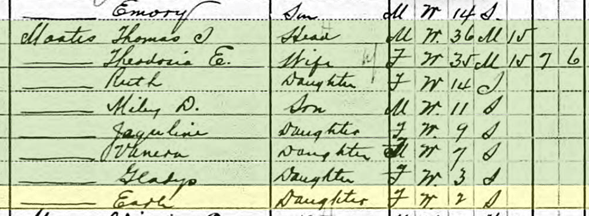 Emory Son M W 14 S
Moates Thomas J Head M W 36 M 15
Theodosia E. Wife F W 35 M 15 7 6
Ruth Daughter F W 14 S
Miley D. Son M W 11 S
Jaquline Daughter F W 9 S
Vanera Daughter W 7 S
Gladys Daughter F W 3 S
Earle Daughter F W 2 S